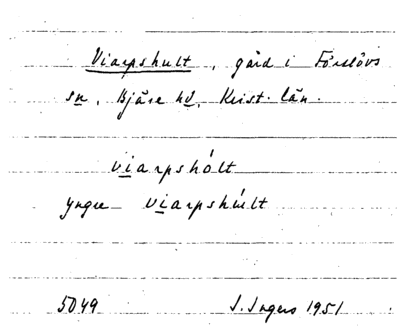 Viarpshult, gård i Förslövs
sn, Bjäre hd, Krist. län.
viarpshólt
yngre viarpshúlt
5049 I. Ingers 1951